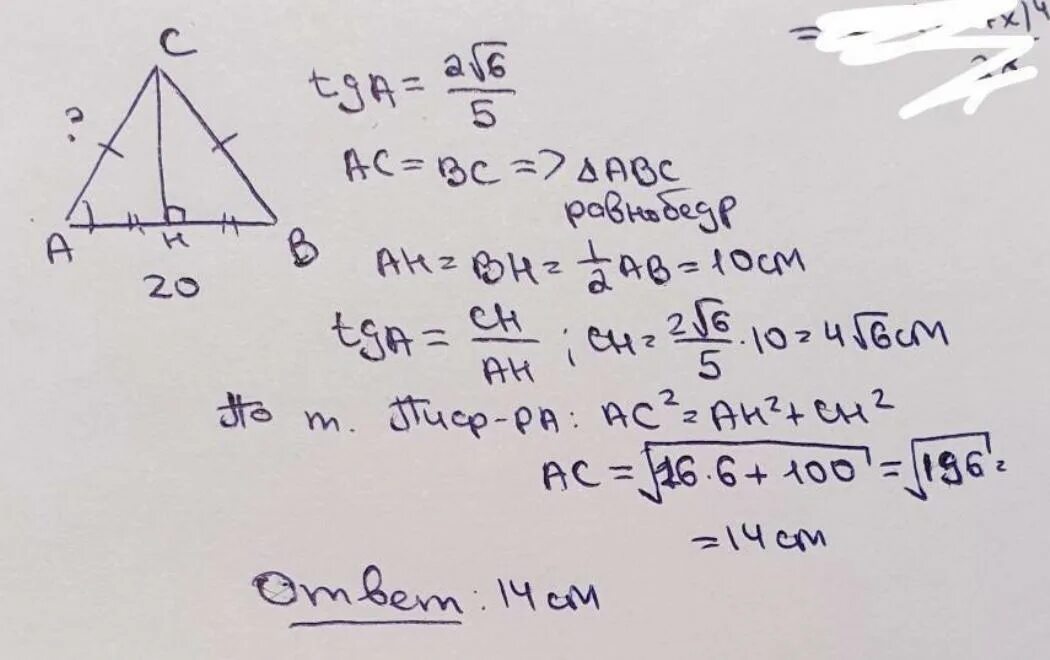 C
?
A
H
B
20
tgA = 2√6/5
AC = BC => ΔABC
равнобедр
AH = BH = 1/2 AB = 10 см
tgA = CH/AH ; CH = 2√6/5 · 10 = 4√6 см
По т. Пиф-ра: AC² = AH² + CH²
AC = √(16·6 + 100) = √196 =
= 14 см
Ответ: 14 см